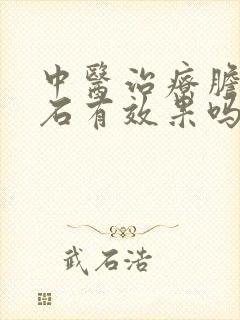 中醫治療膽
石有效果吗
武石浩